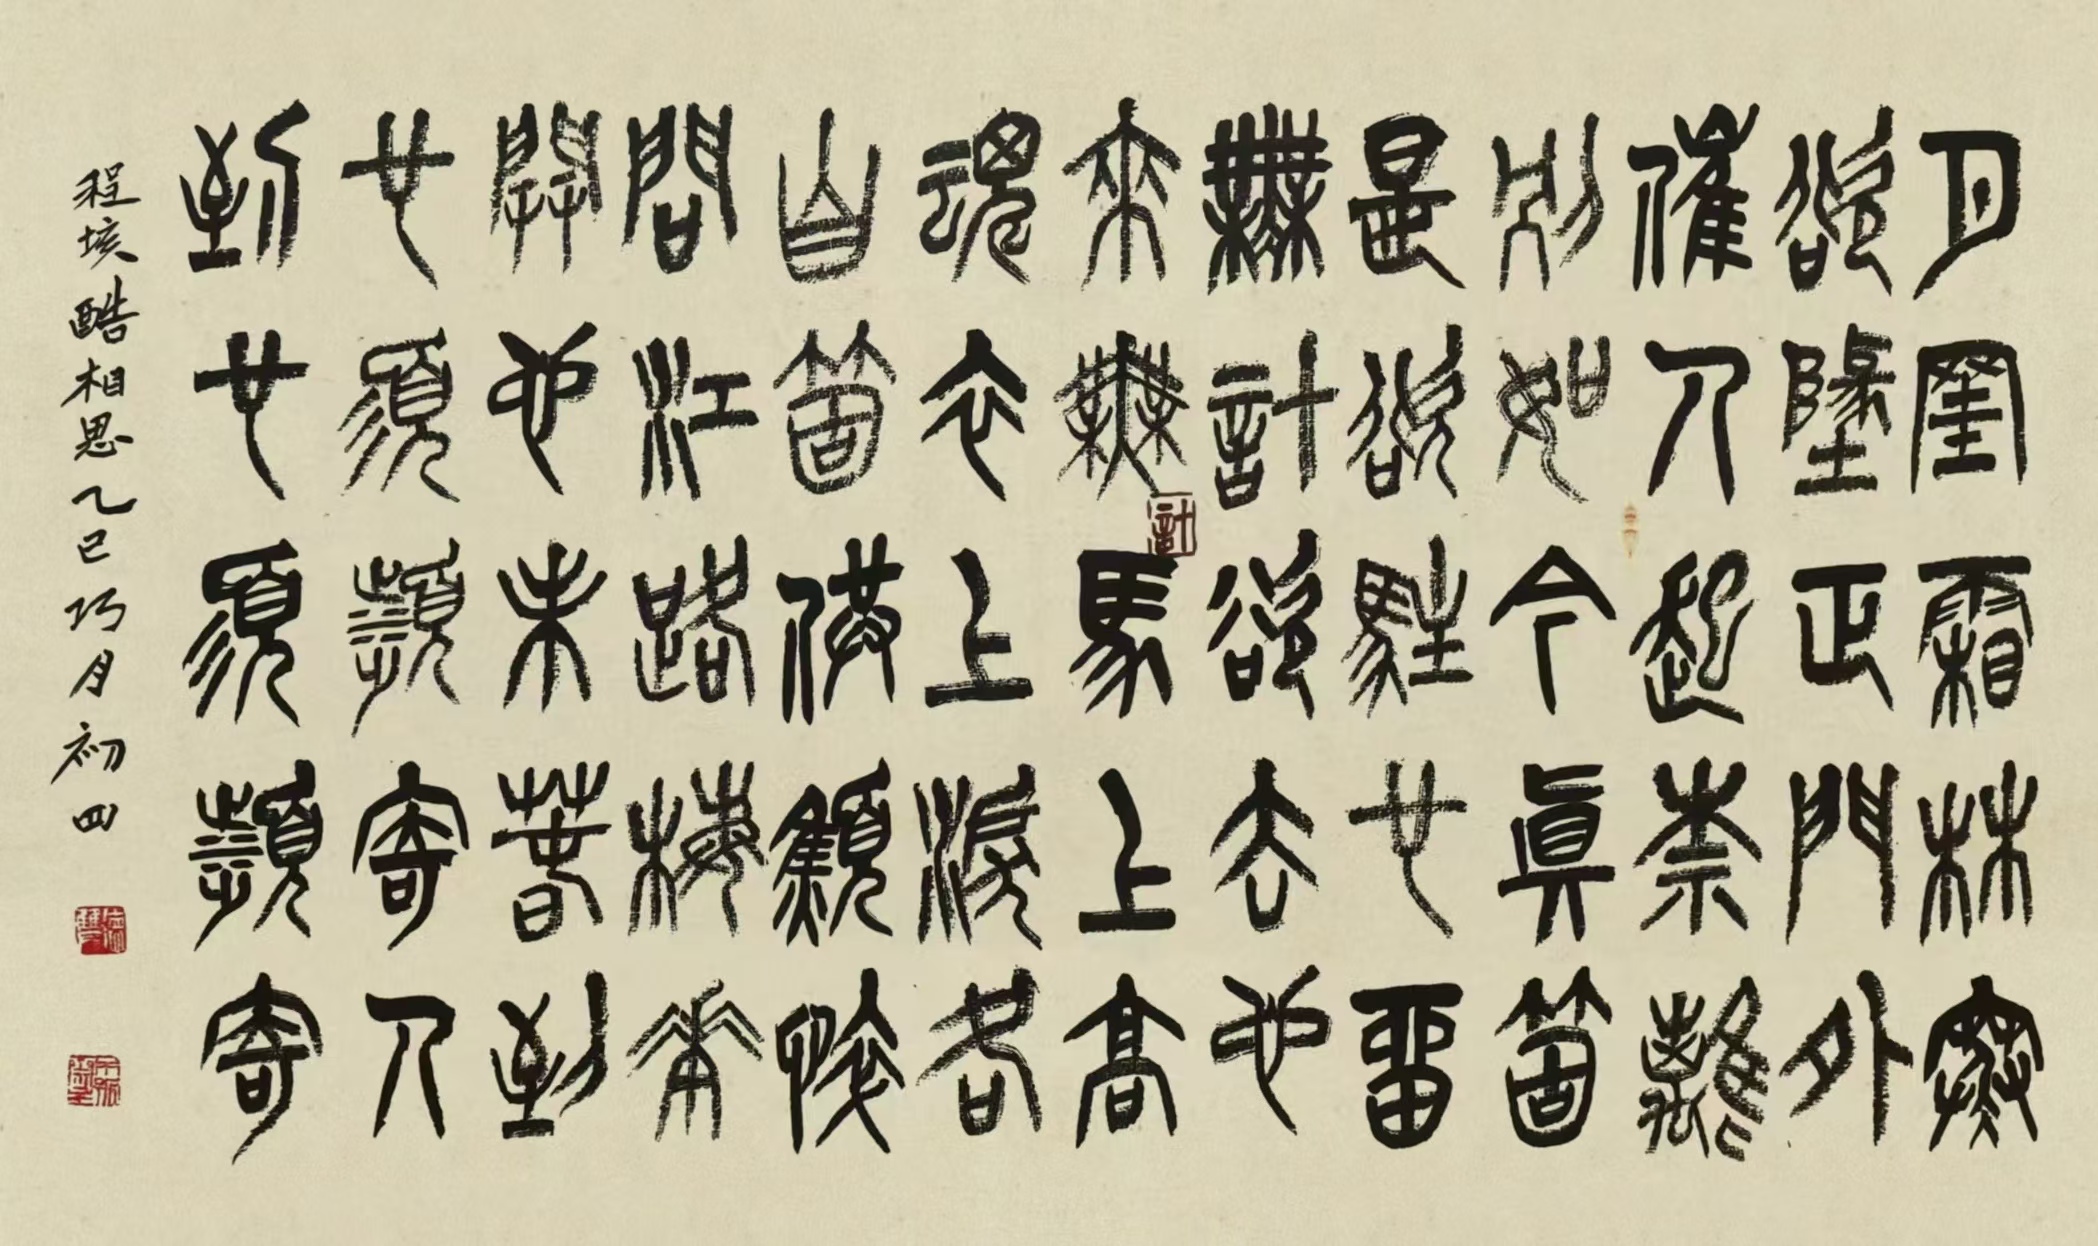 月罣霜林寒
欲墜正門外
催人起奈離
別如今真箇
是欲駐也留
無計欲去也
來無計馬上高
魂衣上淚各
自箇供顦悴
問江路梅花
開也未春到
也須頻寄人
到也須頻寄
程垓酷相思乙巳巧月初四